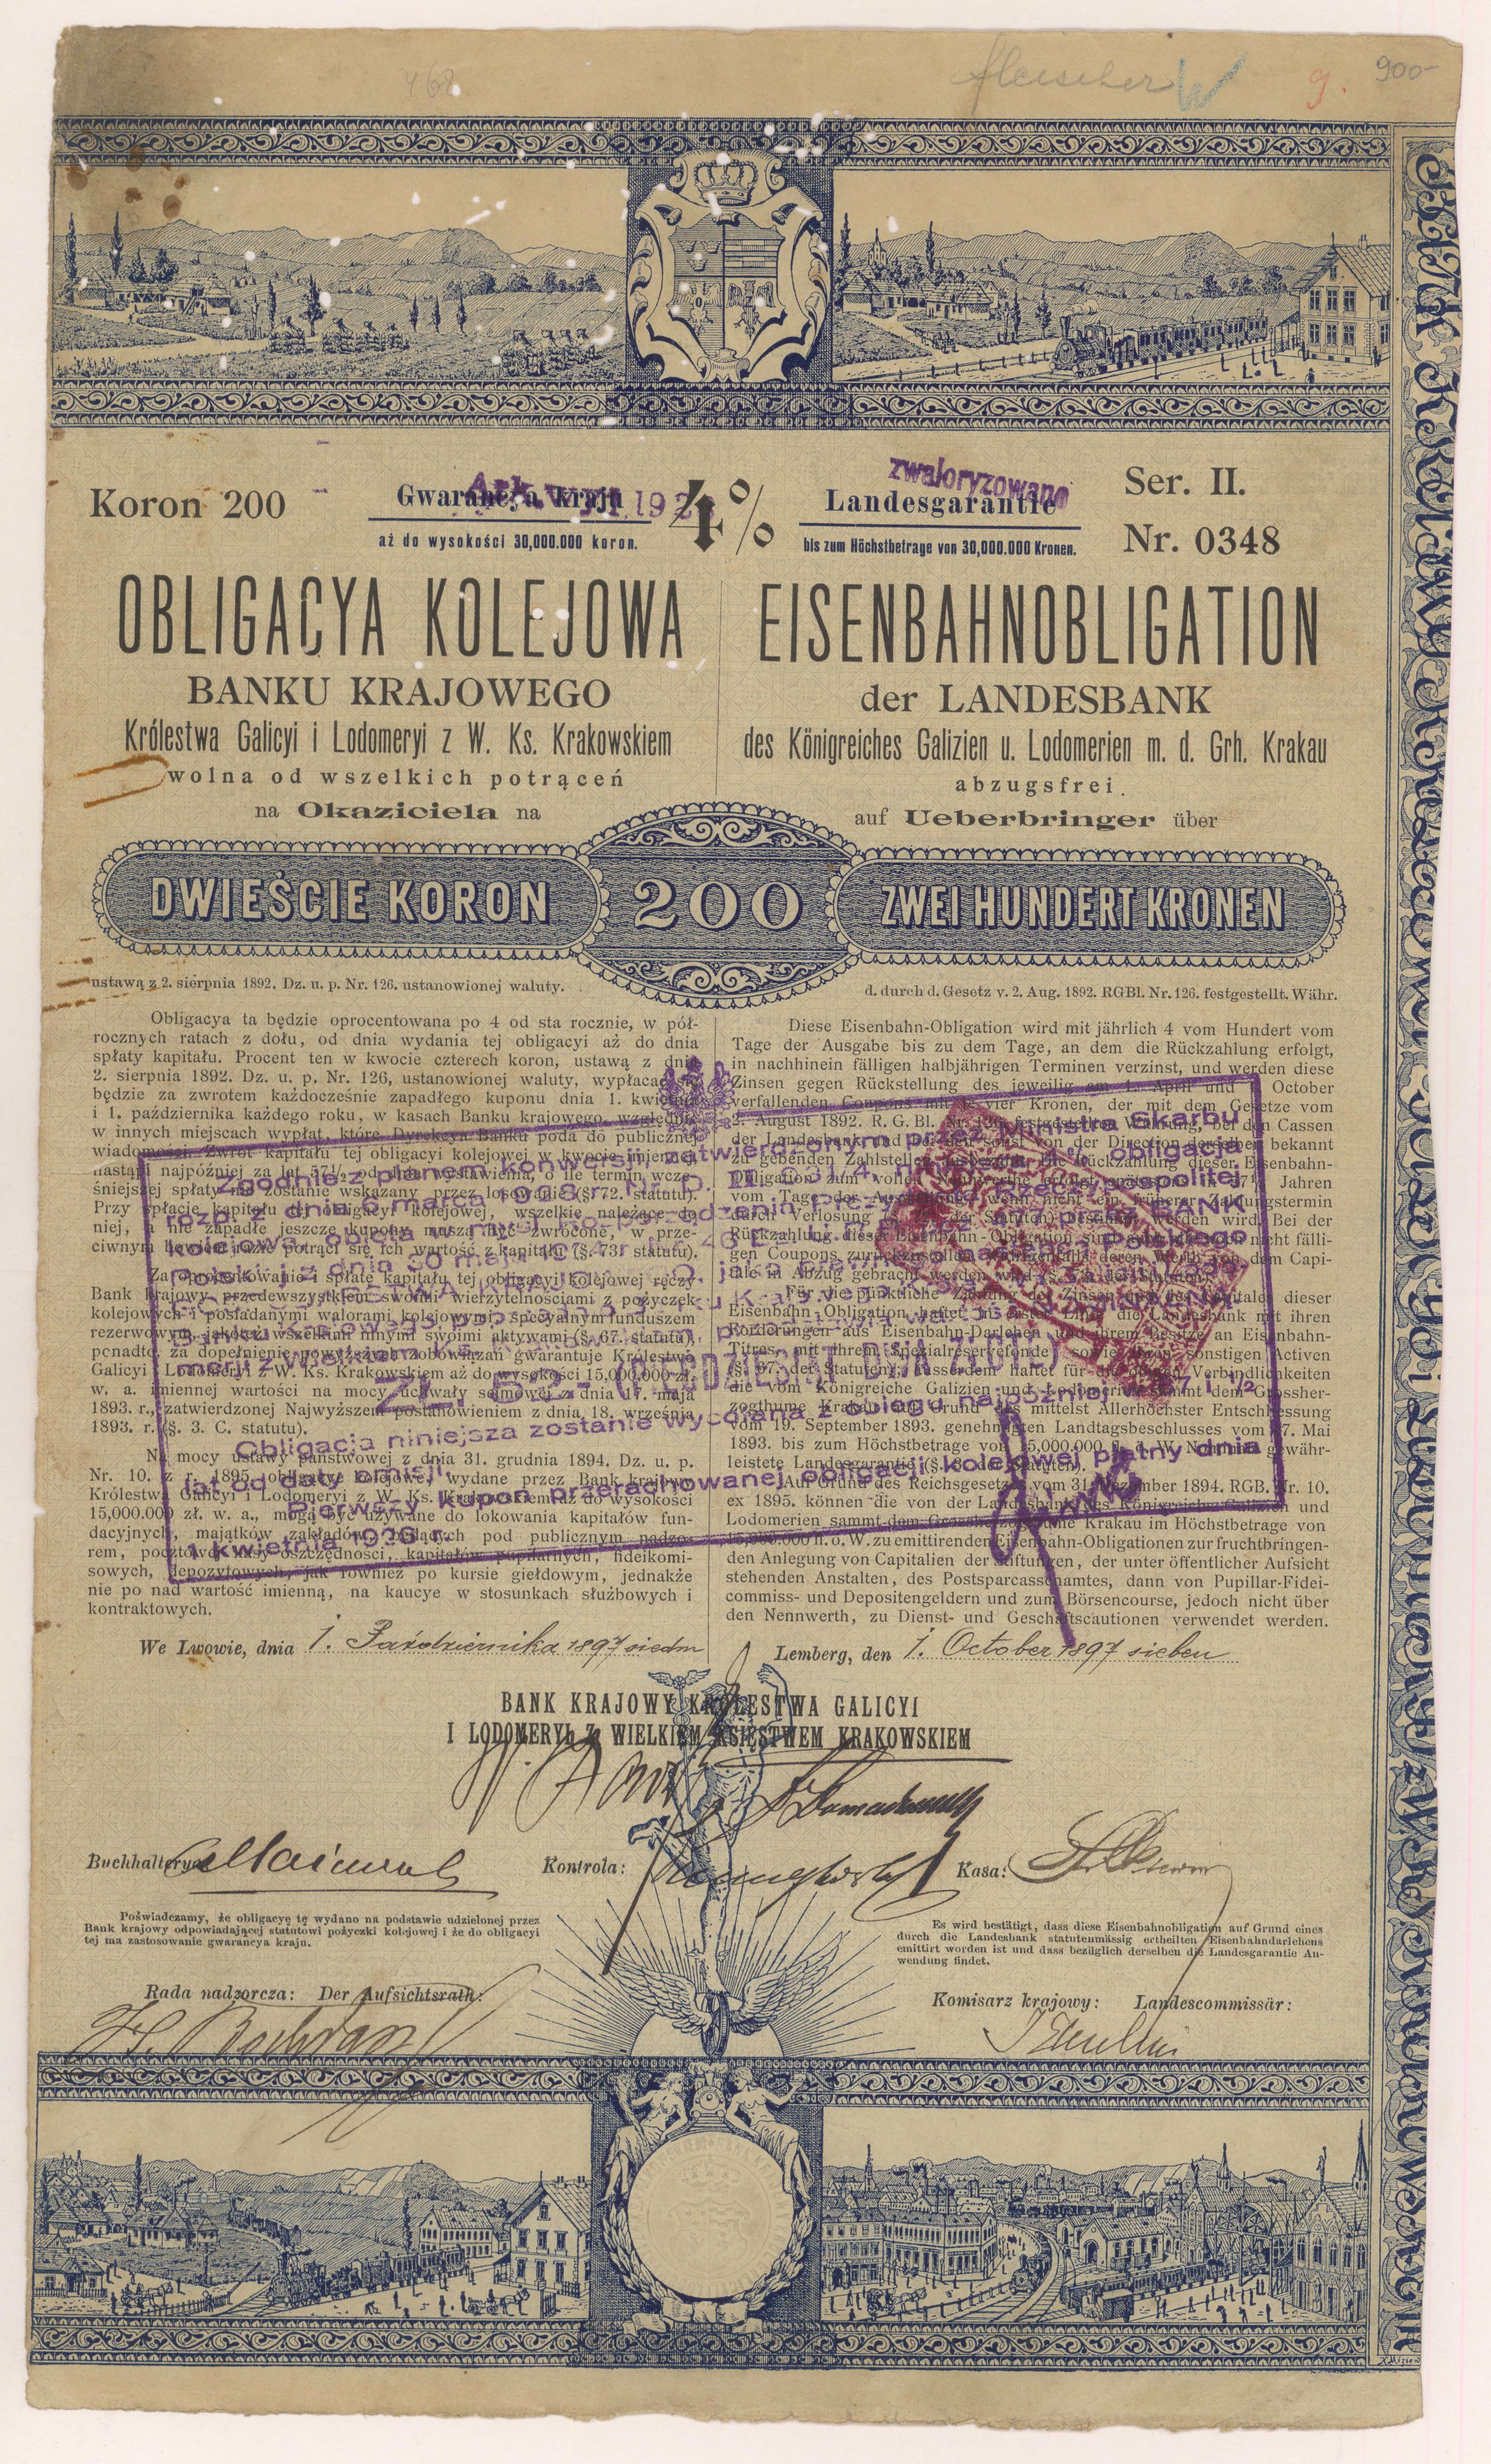 468
fleischer W 9. 900-
Koron 200
Gwarancya kraju
aż do wysokości 30,000.000 koron.
4%
zwaloryzowano
Landesgarantie
bis zum Höchstbetrage von 30,000.000 Kronen.
Ser. II.
Nr. 0348
OBLIGACYA KOLEJOWA
BANKU KRAJOWEGO
Królestwa Galicyi i Lodomeryi z W. Ks. Krakowskiem
wolna od wszelkich potrąceń
na Okaziciela na
EISENBAHNOBLIGATION
der LANDESBANK
des Königreiches Galizien u. Lodomerien m. d. Grh. Krakau
abzugsfrei.
auf Ueberbringer über
DWIEŚCIE KORON 200 ZWEI HUNDERT KRONEN
ustawą z 2. sierpnia 1892. Dz. u. p. Nr. 126. ustanowionej waluty.
d. durch d. Gesetz v. 2. Aug. 1892. RGBl. Nr. 126. festgestellt. Währ.
Obligacya ta będzie oprocentowana po 4 od sta rocznie, w pół-
rocznych ratach z dołu, od dnia wydania tej obligacyi aż do dnia
spłaty kapitału. Procent ten w kwocie czterech koron, ustawą z dnia
2. sierpnia 1892. Dz. u. p. Nr. 126, ustanowionej waluty, wypłacać się
będzie za zwrotem każdocześnie zapadłego kuponu dnia 1. kwietnia
i 1. października każdego roku, w kasach Banku krajowego, względnie
w innych miejscach wypłat, które Dyrekcya Banku poda do publicznej
wiadomości. Zwrot kapitału tej obligacyi kolejowej w kwocie imiennej
nastąpi najpóźniej za lat 57½ od dnia wystawienia, o ile termin wcze-
śniejszej spłaty nie zostanie wskazany przez losowanie (§. 72. statutu).
Przy spłacie kapitału tej obligacyi kolejowej, wszelkie należące do
niej, a nie zapadłe jeszcze kupony muszą być zwrócone, w prze-
ciwnym bowiem razie potrąci się ich wartość z kapitału (§. 73. statutu).
Za oprocentowanie i spłatę kapitału tej obligacyi kolejowej ręczy
Bank krajowy przedewszystkiem swoimi wierzytelnościami z pożyczek
kolejowych i posiadanymi walorami kolejowymi, specyalnym funduszem
rezerwowym, jakoteż wszelkimi innymi swoimi aktywami (§. 67. statutu),
ponadto, za dopełnienie powyższych zobowiązań gwarantuje Królestwo
Galicyi i Lodomeryi z W. Ks. Krakowskiem aż do wysokości 15,000.000 zł.
w. a. imiennej wartości na mocy uchwały sejmowej z dnia 17. maja
1893. r., zatwierdzonej Najwyższem postanowieniem z dnia 18. września
1893. r. (§. 3. C. statutu).
Na mocy ustawy państwowej z dnia 31. grudnia 1894. Dz. u. p.
Nr. 10. z r. 1895, obligacye kolejowe, wydane przez Bank krajowy
Królestwa Galicyi i Lodomeryi z W. Ks. Krakowskiem aż do wysokości
15,000.000 zł. w. a., mogą być używane do lokowania kapitałów fun-
dacyjnych, majątków zakładów, będących pod publicznym nadzo-
rem, pocztowej kasy oszczędności, kapitałów pupilarnych, fideikomi-
sowych, depozytowych, jak również po kursie giełdowym, jednakże
nie po nad wartość imienną, na kaucye w stosunkach służbowych i
kontraktowych.
Diese Eisenbahn-Obligation wird mit jährlich 4 vom Hundert vom
Tage der Ausgabe bis zu dem Tage, an dem die Rückzahlung erfolgt,
in nachhinein fälligen halbjährigen Terminen verzinst, und werden diese
Zinsen gegen Rückstellung des jeweilig am 1. April und 1. October
verfallenden Coupons mit je vier Kronen, der mit dem Gesetze vom
2. August 1892. R. G. Bl. Nr. 126. festgestellten Währung, bei den Cassen
der Landesbank und bei den sonst von der Direction derselben bekannt
zu gebenden Zahlstellen ausbezahlt. Die Rückzahlung dieser Eisenbahn-
Obligation zum vollen Nennwerthe erfolgt spätestens 57½ Jahren
vom Tage der Ausstellung, wenn nicht ein früherer Zahlungstermin
durch Verlosung der Statuten) bestimmt werden wird. Bei der
Rückzahlung dieser Eisenbahn-Obligation sind nicht fälli-
gen Coupons zurückzustellen, widrigenfalls deren Werth von dem Capi-
tale in Abzug gebracht werden wird der Statuten).
Für die pünktliche Zahlung der Zinsen und des Capitales dieser
Eisenbahn-Obligation haftet in erster Linie die Landesbank mit ihren
Forderungen aus Eisenbahn-Darlehen und ihrem Besitze an Eisenbahn-
Titres, mit ihrem Spezialreservefonde, sowie ihren sonstigen Activen
(§. 67. der Statuten), ausserdem haftet für die Verbindlichkeiten
die vom Königreiche Galizien und Lodomerien sammt dem Grossher-
zogthume Krakau auf Grund des mittelst Allerhöchster Entschliessung
vom 19. September 1893. genehmigten Landtagsbeschlusses vom 17. Mai
1893. bis zum Höchstbetrage von 15,000.000 fl. ö. W. Nominale gewähr-
leistete Landesgarantie (§. 3. C. der Statuten).
Auf Grund des Reichsgesetzes vom 31. Dezember 1894. RGB. Nr. 10.
ex 1895. können die von der Landesbank des Königreichs Galizien und
Lodomerien sammt dem Grossherzogthume Krakau im Höchstbetrage von
15,000.000 fl. ö. W. zu emittirenden Eisenbahn-Obligationen zur fruchtbringen-
den Anlegung von Capitalien der Stiftungen, der unter öffentlicher Aufsicht
stehenden Anstalten, des Postsparcassenamtes, dann von Pupillar-Fidei-
commiss- und Depositengeldern und zum Börsencourse, jedoch nicht über
den Nennwerth, zu Dienst- und Geschäftscautionen verwendet werden.
Zgodnie z planem konwersji, zatwierdzonym przez Ministra Skarbu
rozp. z dnia 5 marca 1938 r. Nr. D. III. 4% obligacja
kolejowa, objęta Rozporządzenia Rzeczypospolitej
przez BANK
ZŁ. 52.-
Obligacja niniejsza zostanie wycofana z obiegu najpóźniej 71½
lat od daty emisji.
Pierwszy kupon przerachowanej obligacji kolejowej płatny dnia
1 kwietnia 1936 r.
We Lwowie, dnia 1. Października 1897 siedm
Lemberg, den 1. October 1897 sieben
BANK KRAJOWY KRÓLESTWA GALICYI
I LODOMERYI Z WIELKIEM KSIĘSTWEM KRAKOWSKIEM
Buchhalterya:
Kontrola:
Kasa:
Poświadczamy, że obligacyę tę wydano na podstawie udzielonej przez
Bank krajowy odpowiadającej statutowi pożyczki kolejowej i że do obligacyi
tej ma zastosowanie gwarancya kraju.
Es wird bestätigt, dass diese Eisenbahnobligation auf Grund eines
durch die Landesbank statutenmässig ertheilten Eisenbahndarlehens
emittirt worden ist und dass bezüglich derselben die Landesgarantie An-
wendung findet.
Rada nadzorcza: Der Aufsichtsrath:
Komisarz krajowy: Landescommissär: